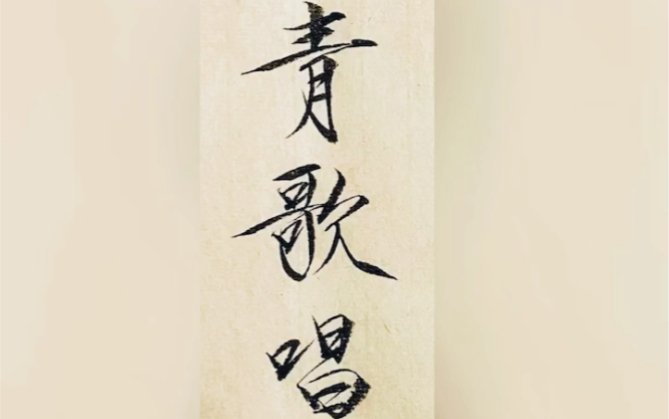 青歌唱